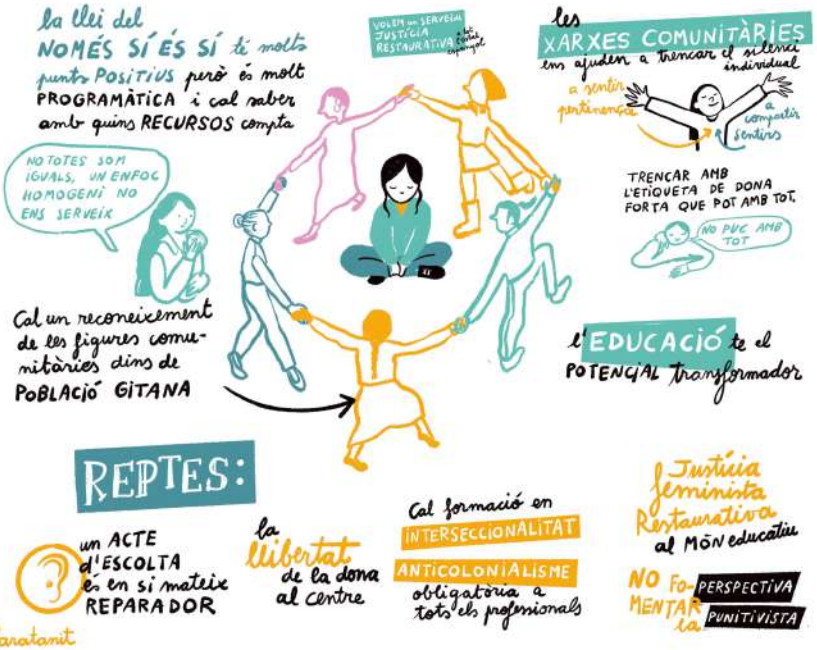 la llei del
NOMÉS SÍ ÉS SÍ té molts
punts POSITIUS però és molt
PROGRAMÀTICA i cal saber
amb quins RECURSOS compta
VOLEM un SERVEIU
JUSTÍCIA
RESTAURATIVA
a tot
l'estat
espanyol
les
XARXES COMUNITÀRIES
ens ajuden a trencar el silenci
individual
a sentir
pertinença
a
compartir
sentirs
NO TOTES SOM
IGUALS, UN ENFOC
HOMOGENI NO
ENS SERVEIX
TRENCAR AMB
L'ETIQUETA DE DONA
FORTA QUE POT AMB TOT.
NO PUC AMB
TOT
Cal un reconeixement
de les figures comu-
nitàries dins de
POBLACIÓ GITANA
l'EDUCACIÓ te el
POTENCIAL transformador
REPTES:
un ACTE
d'ESCOLTA
és en si mateix
REPARADOR
la
llibertat
de la dona
al centre
Cal formació en
INTERSECCIONALITAT
ANTICOLONIALISME
obligatòria a
tots els professionals
Justícia
feminista
Restaurativa
al MÓN educatiu
NO FO-
MENTAR
la
PERSPECTIVA
PUNITIVISTA
aratanit